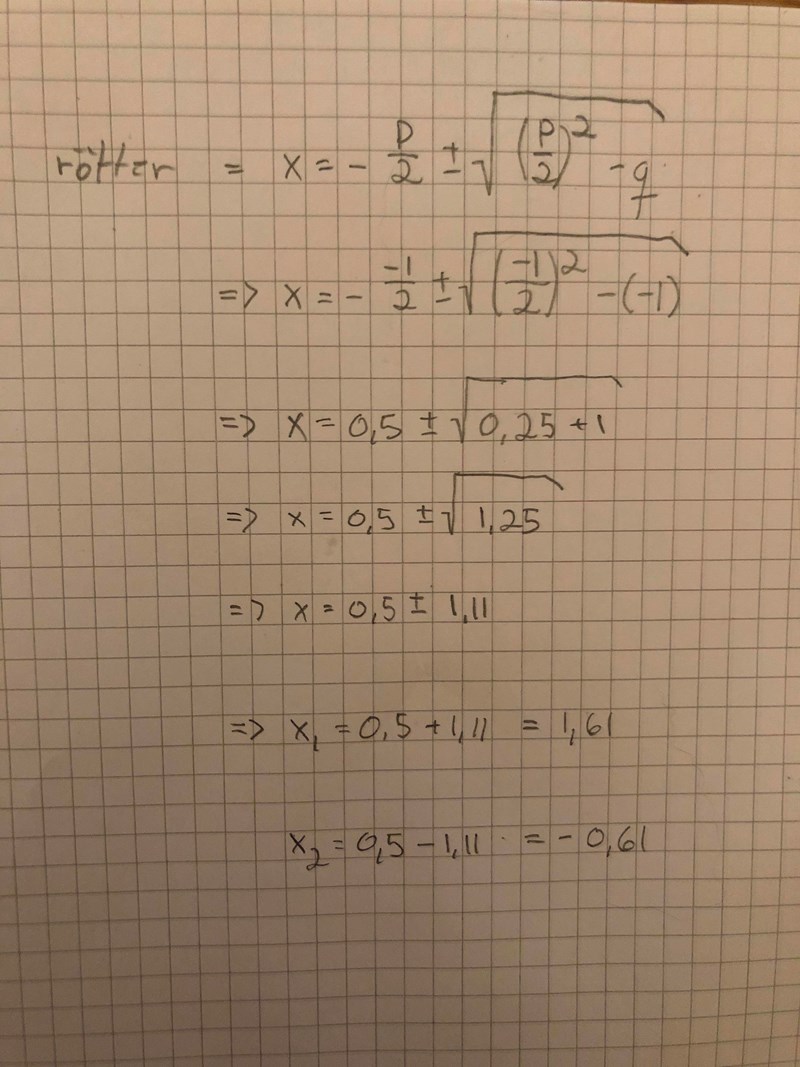 rötter = x = - p/2 ± √((p/2)² - q)
=> x = - -1/2 ± √((-1/2)² - (-1))
=> x = 0,5 ± √(0,25 + 1)
=> x = 0,5 ± √(1,25)
=> x = 0,5 ± 1,11
=> x₁ = 0,5 + 1,11 = 1,61
x₂ = 0,5 - 1,11 = - 0,61